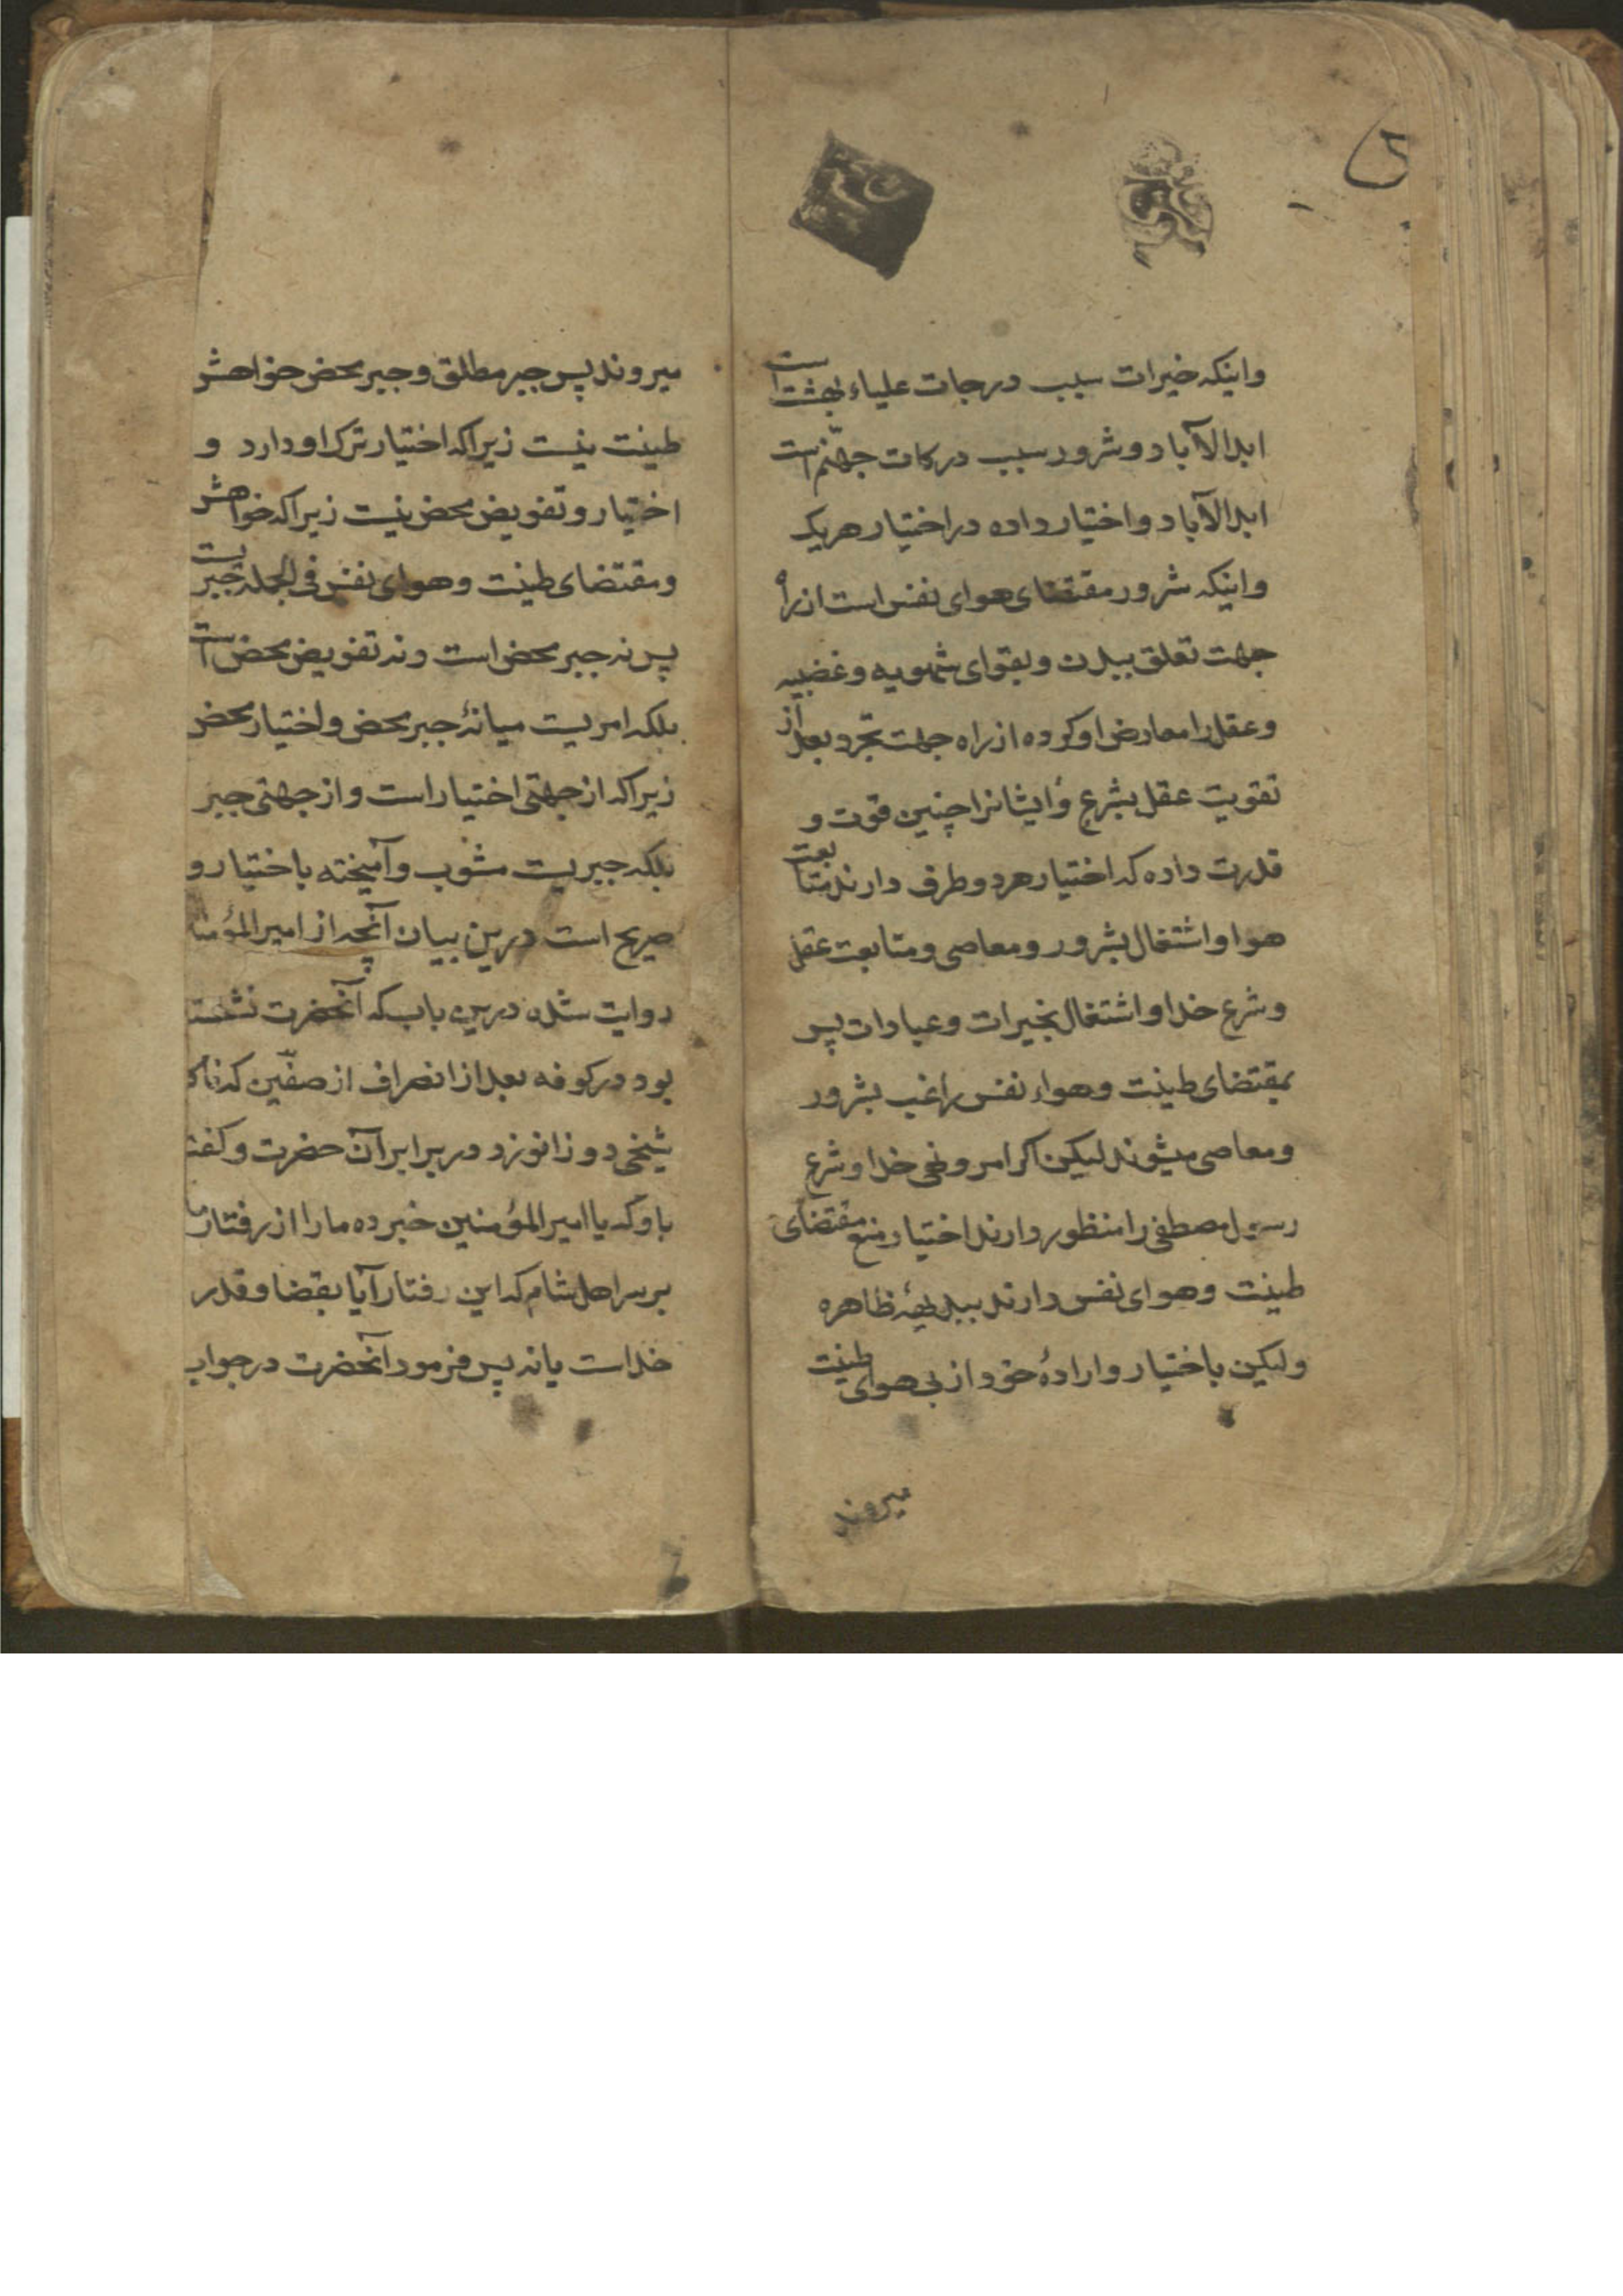 واینکه خیرات سبب درجات علیاء بهشت است
ابدالآباد و شرور سبب درکات جهنّم است
ابدالآباد و اختیار داده در اختیار هریک
واینکه شرور مقتضای هوای نفس است از راه
جهت تعلق ببدن و بقوای شهویه و غضبیه
و عقل را معارض او کرده از راه جهت تجرد بعد از
تقویت عقل بشرع و ایشانرا چنین قوت و
قدرت داده که اختیار هر دو طرف دارند متابعت
هوا و اشتغال بشرور و معاصی و متابعت عقل
و شرع خدا و اشتغال بخیرات و عبادات پس
بمقتضای طینت و هواء نفس راغب بشرور
و معاصی میشوند لیکن اکر امر و نهی خدا و شرع
رسول مصطفی را منظور دارند اختیار منع مقتضای
طینت و هوای نفس دارند ببدیههٔ ظاهره
ولیکن باختیار و ارادهٔ خود از پی هوای طینت
میروند
میروند پس جبر مطلق و جبر محض خواهش
طینت نیست زیراکه اختیار ترک او دارد و
اختیار و تفویض محض نیست زیراکه خواهش
و مقتضای طینت و هوای نفس فی الجمله جبریست
پس نه جبر محض است و نه تفویض محض است
بلکه امریست میانهٔ جبر محض و اختیار محض
زیراکه از جهتی اختیار است و از جهتی جبر
بلکه جبریست مشوب و آمیخته باختیار و
صریح است درین بیان آنچه از امیرالمؤمنا
روایت شده درین باب که آنحضرت نشسته
بود در کوفه بعد از انصراف از صفّین که ناکا
شیخی دو زانو زد در برابر آن حضرت و کفت
باو که یا امیرالمؤمنین خبر ده ما را از رفتار ما
بر سر اهل شام که این رفتار آیا بقضا و قدر
خداست یا نه پس فرمود آنحضرت در جواب